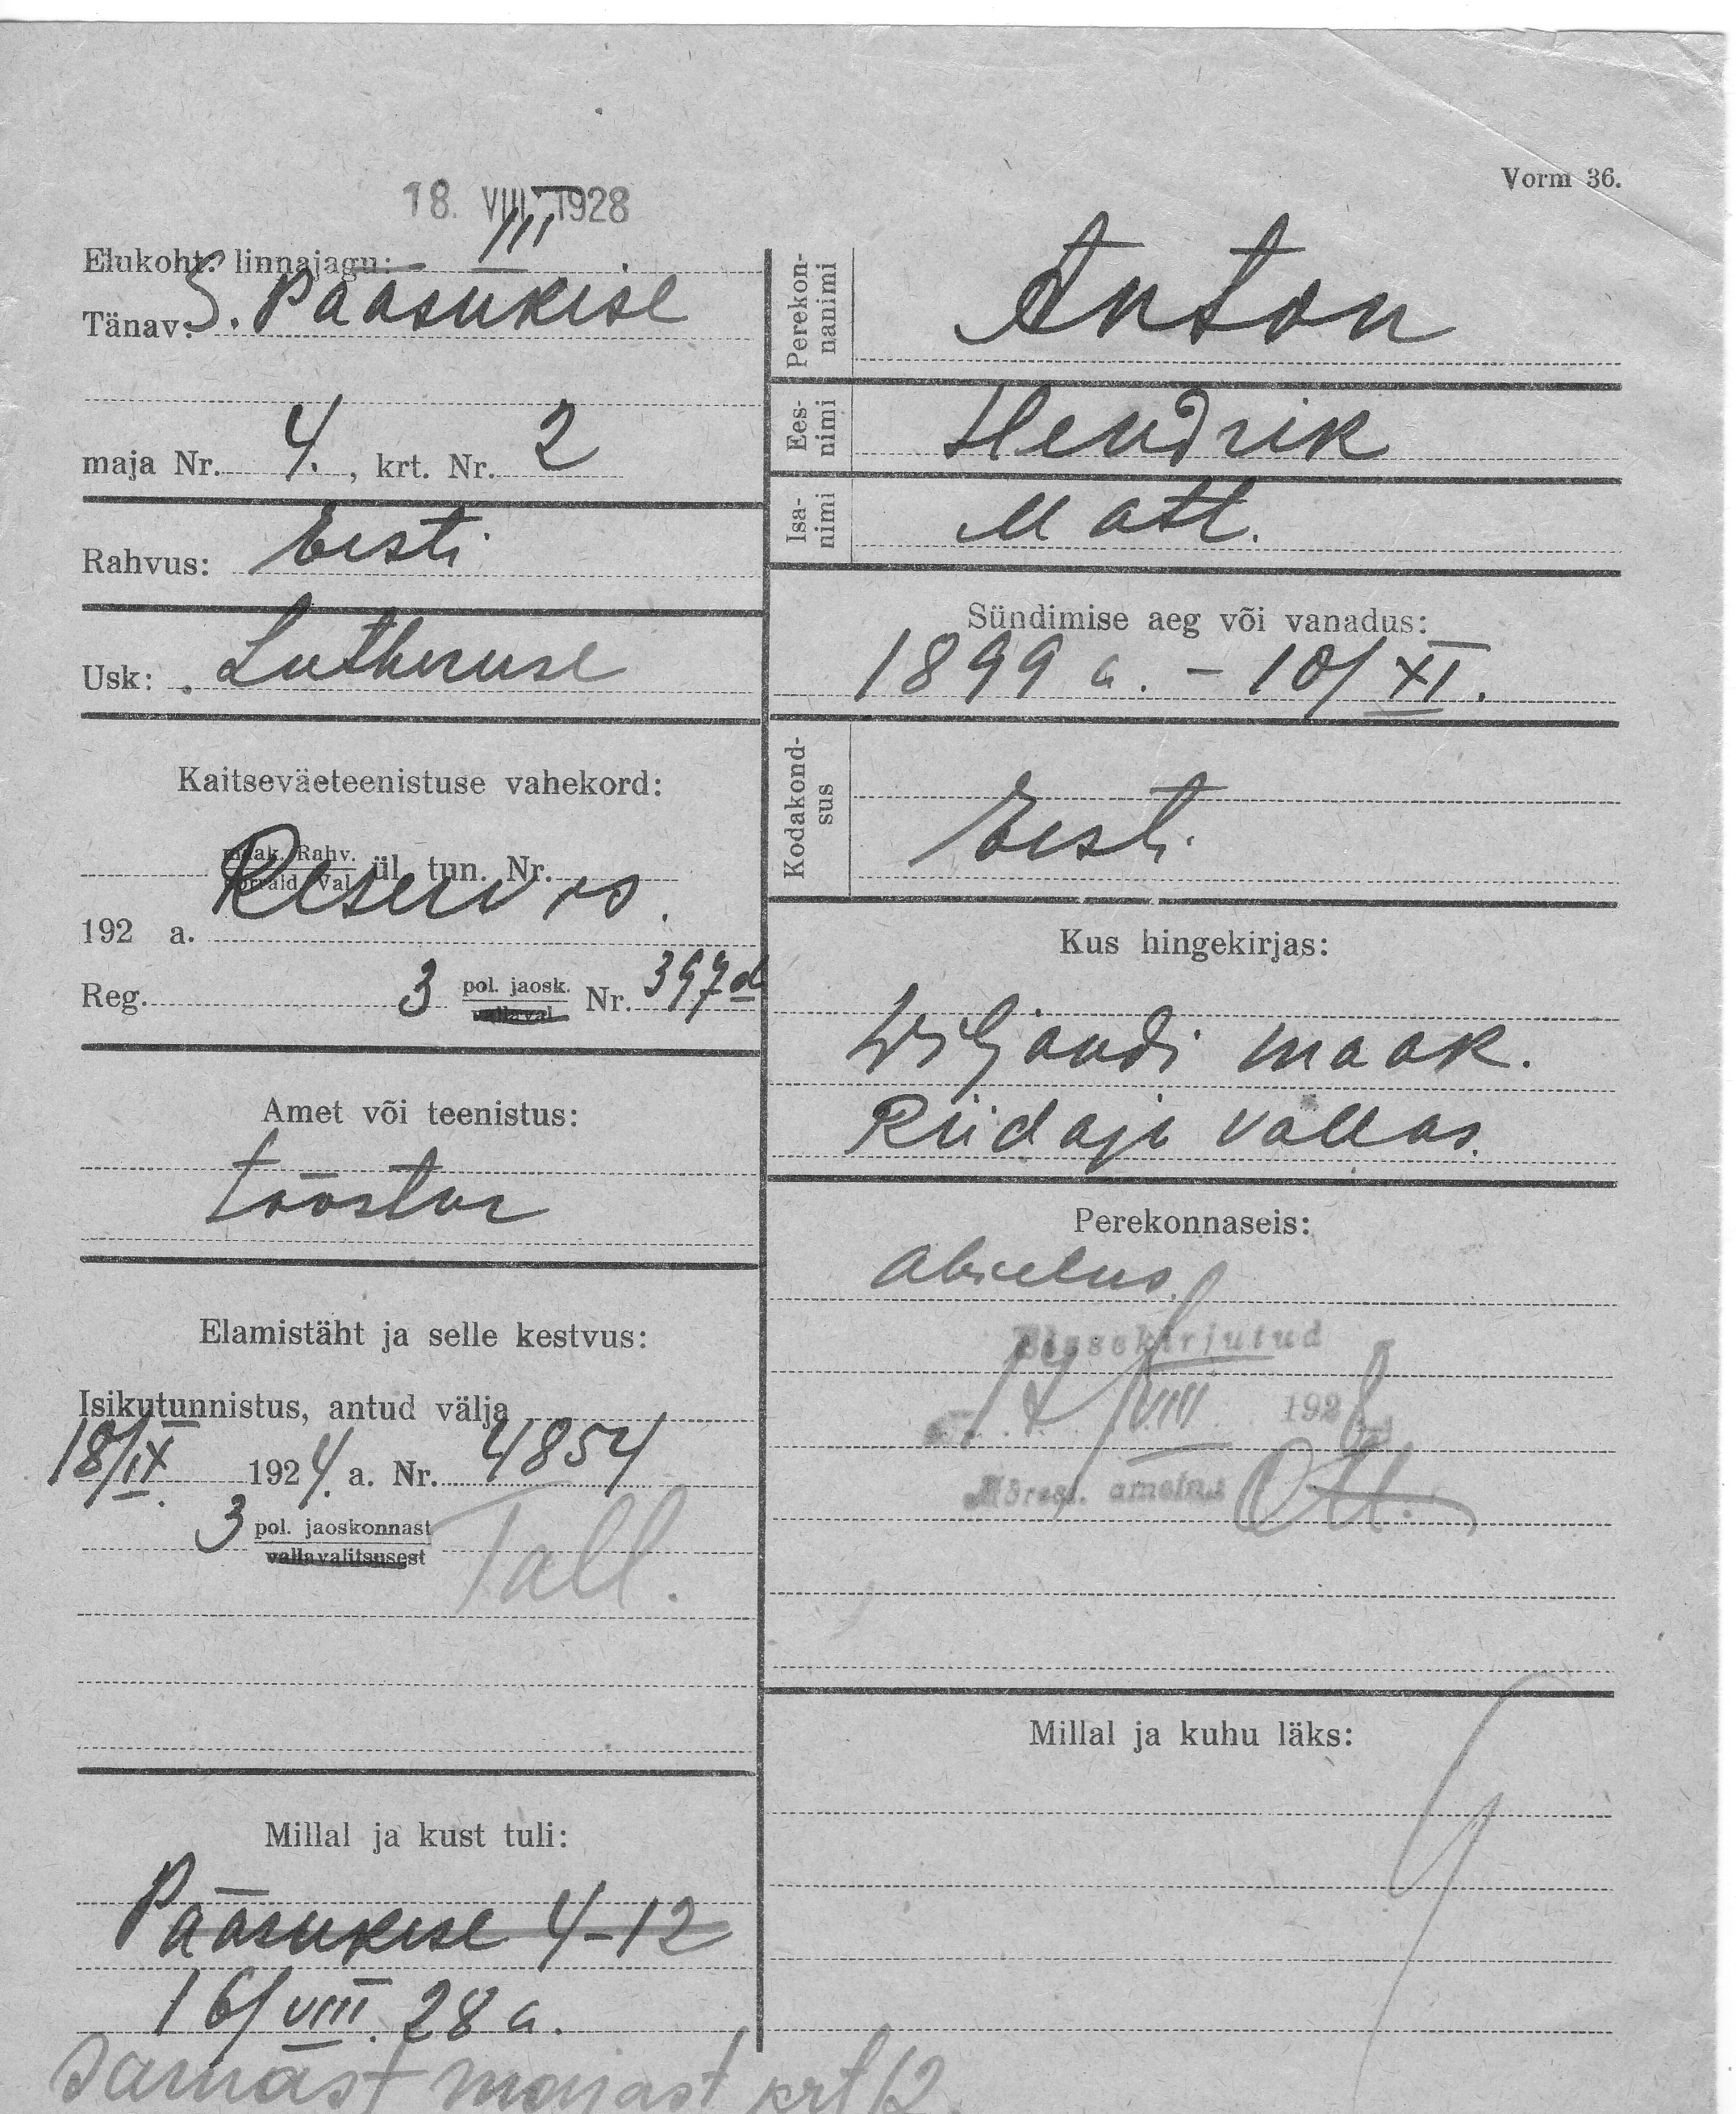 Vorm 36.
18. VIII 1928
Elukoht: linnajagu: III
Tänav: S. Pääsukese
maja Nr. 4., krt. Nr. 2
Rahvus: Eesti
Usk: Lutheruse
Kaitseväeteenistuse vahekord:
maak. Rahv. ül. tun. Nr.
Reservis.
192 a.
Reg. 3 pol. jaosk. Nr.
vallaval.
Amet või teenistus:
töostur
Elamistäht ja selle kestvus:
Isikutunnistus, antud välja
18/IX 1924. a. Nr. 4854
3 pol. jaoskonnast Tall.
vallavalitsusest
Millal ja kust tuli:
Pääsukese 4-12
16/VIII. 28 a.
samast majast krt 12.
Perekon-
nanimi
Anton
Ees-
nimi
Hendrik
Isa-
nimi
Matt.
Sündimise aeg või vanadus:
1899 a. - 10/XI.
Kodakond-
sus
Eesti
Kus hingekirjas:
Wiljandi maak.
Riidaja vallas.
Perekonnaseis:
abielus.
Sissekirjutud
17/VIII 1928
Adress. ametnik Ott.
Millal ja kuhu läks: